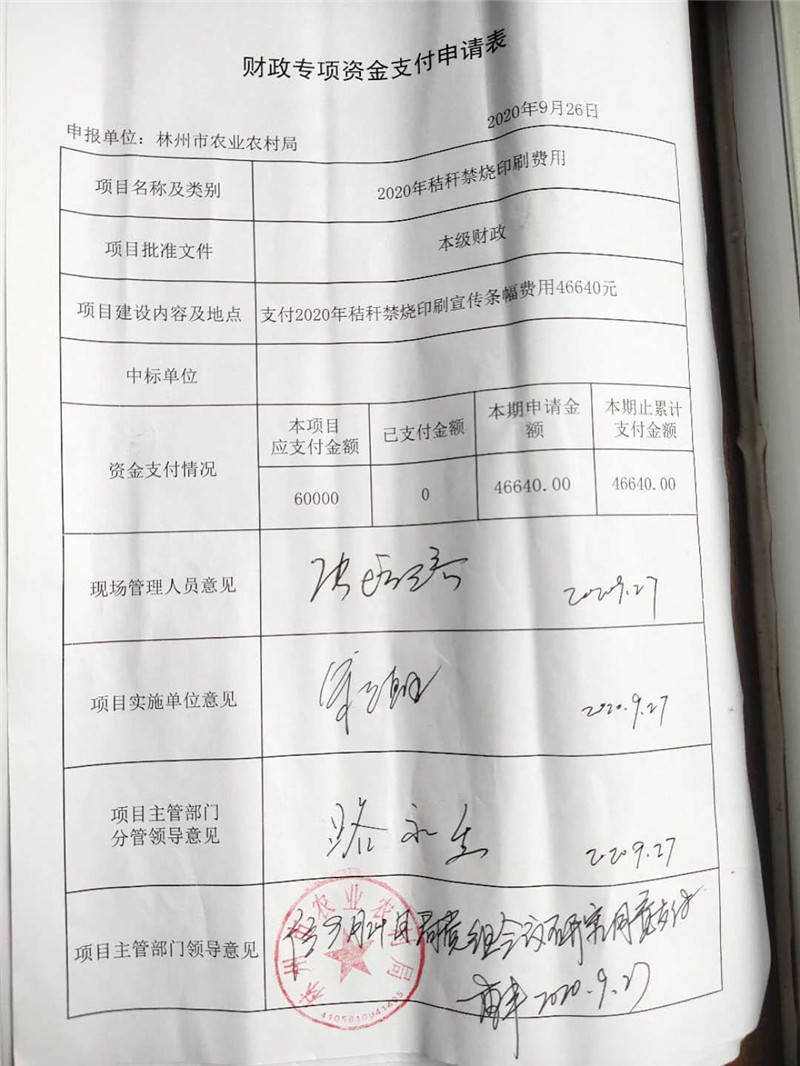 财政专项资金支付申请表
2020年9月26日
申报单位：林州市农业农村局
项目名称及类别
2020年秸秆禁烧印刷费用
项目批准文件
本级财政
项目建设内容及地点
支付2020年秸秆禁烧印刷宣传条幅费用46640元
中标单位
资金支付情况
本项目
应支付金额
已支付金额
本期申请金
额
本期止累计
支付金额
60000
0
46640.00
46640.00
现场管理人员意见
2020.9.27
项目实施单位意见
2020.9.27
项目主管部门
分管领导意见
路永生
2020.9.27
项目主管部门领导意见
局党组会议研究同意支付
2020.9.27
林州市农业农村局